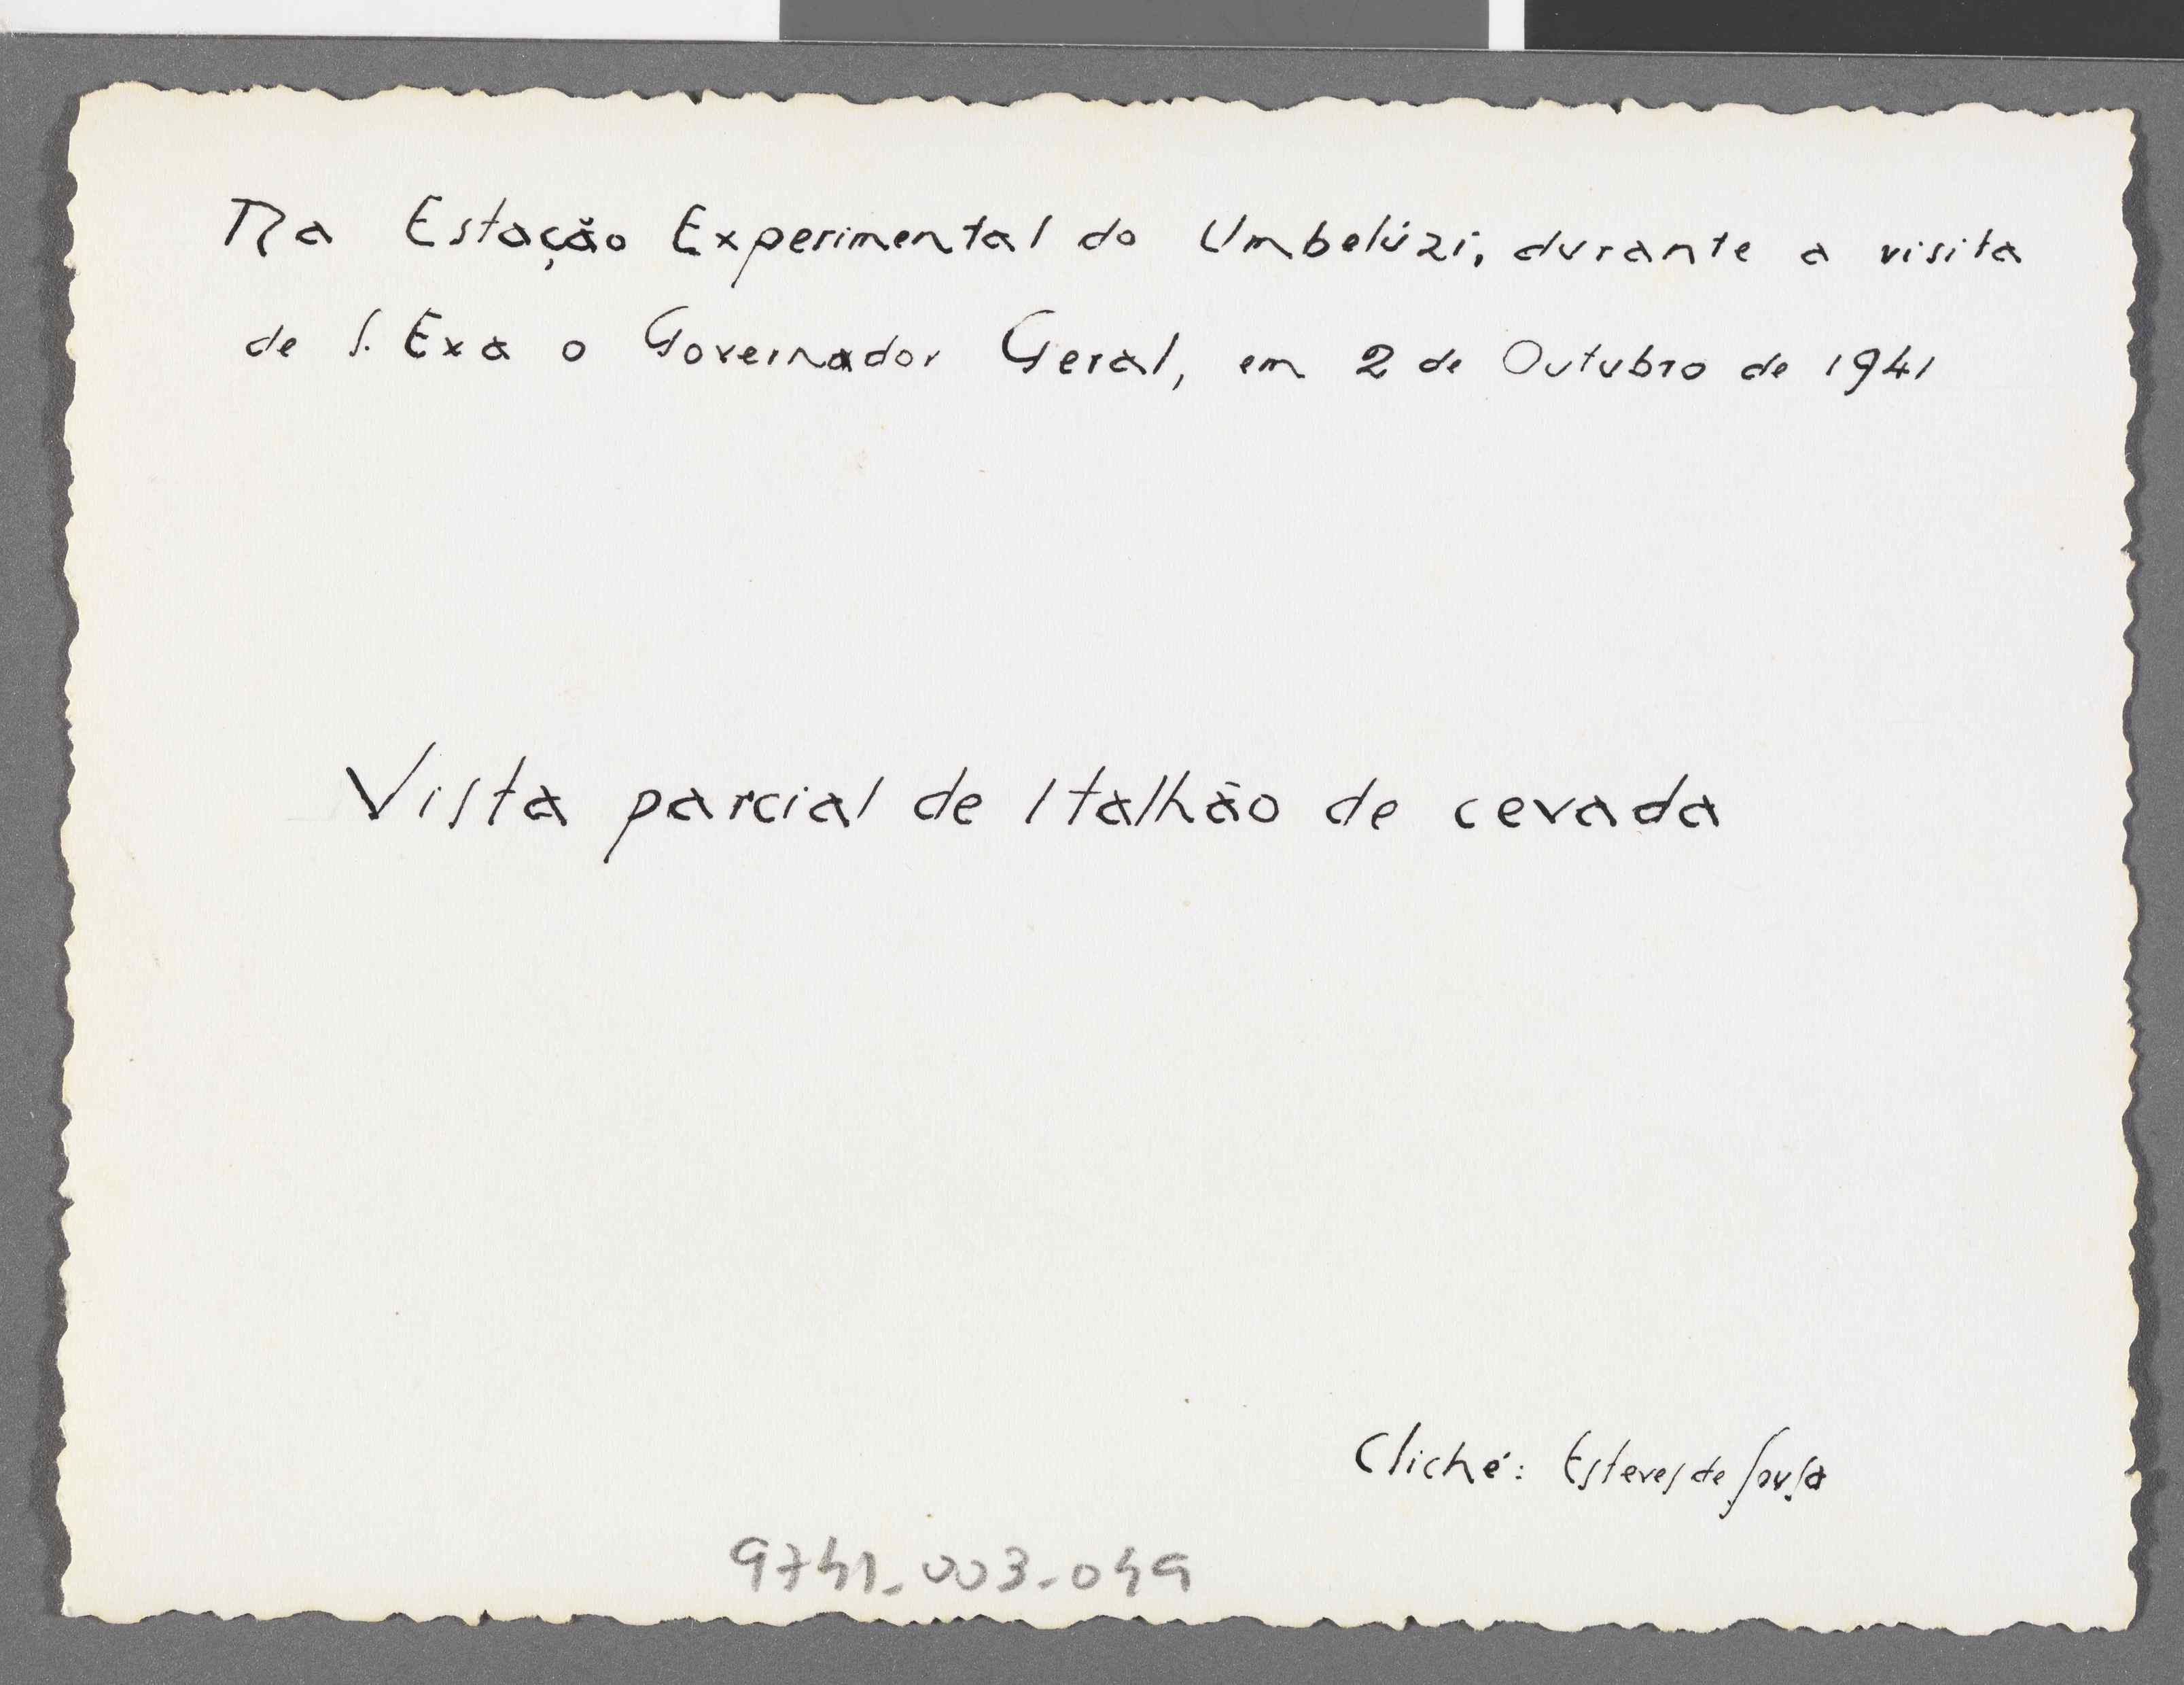 Na Estação Experimental do Umbelúzi, durante a visita
de S. Exa o Governador Geral, em 2 de Outubro de 1941
Vista parcial de 1 talhão de cevada
Cliché: Esteves de Sousa
9741_003_049